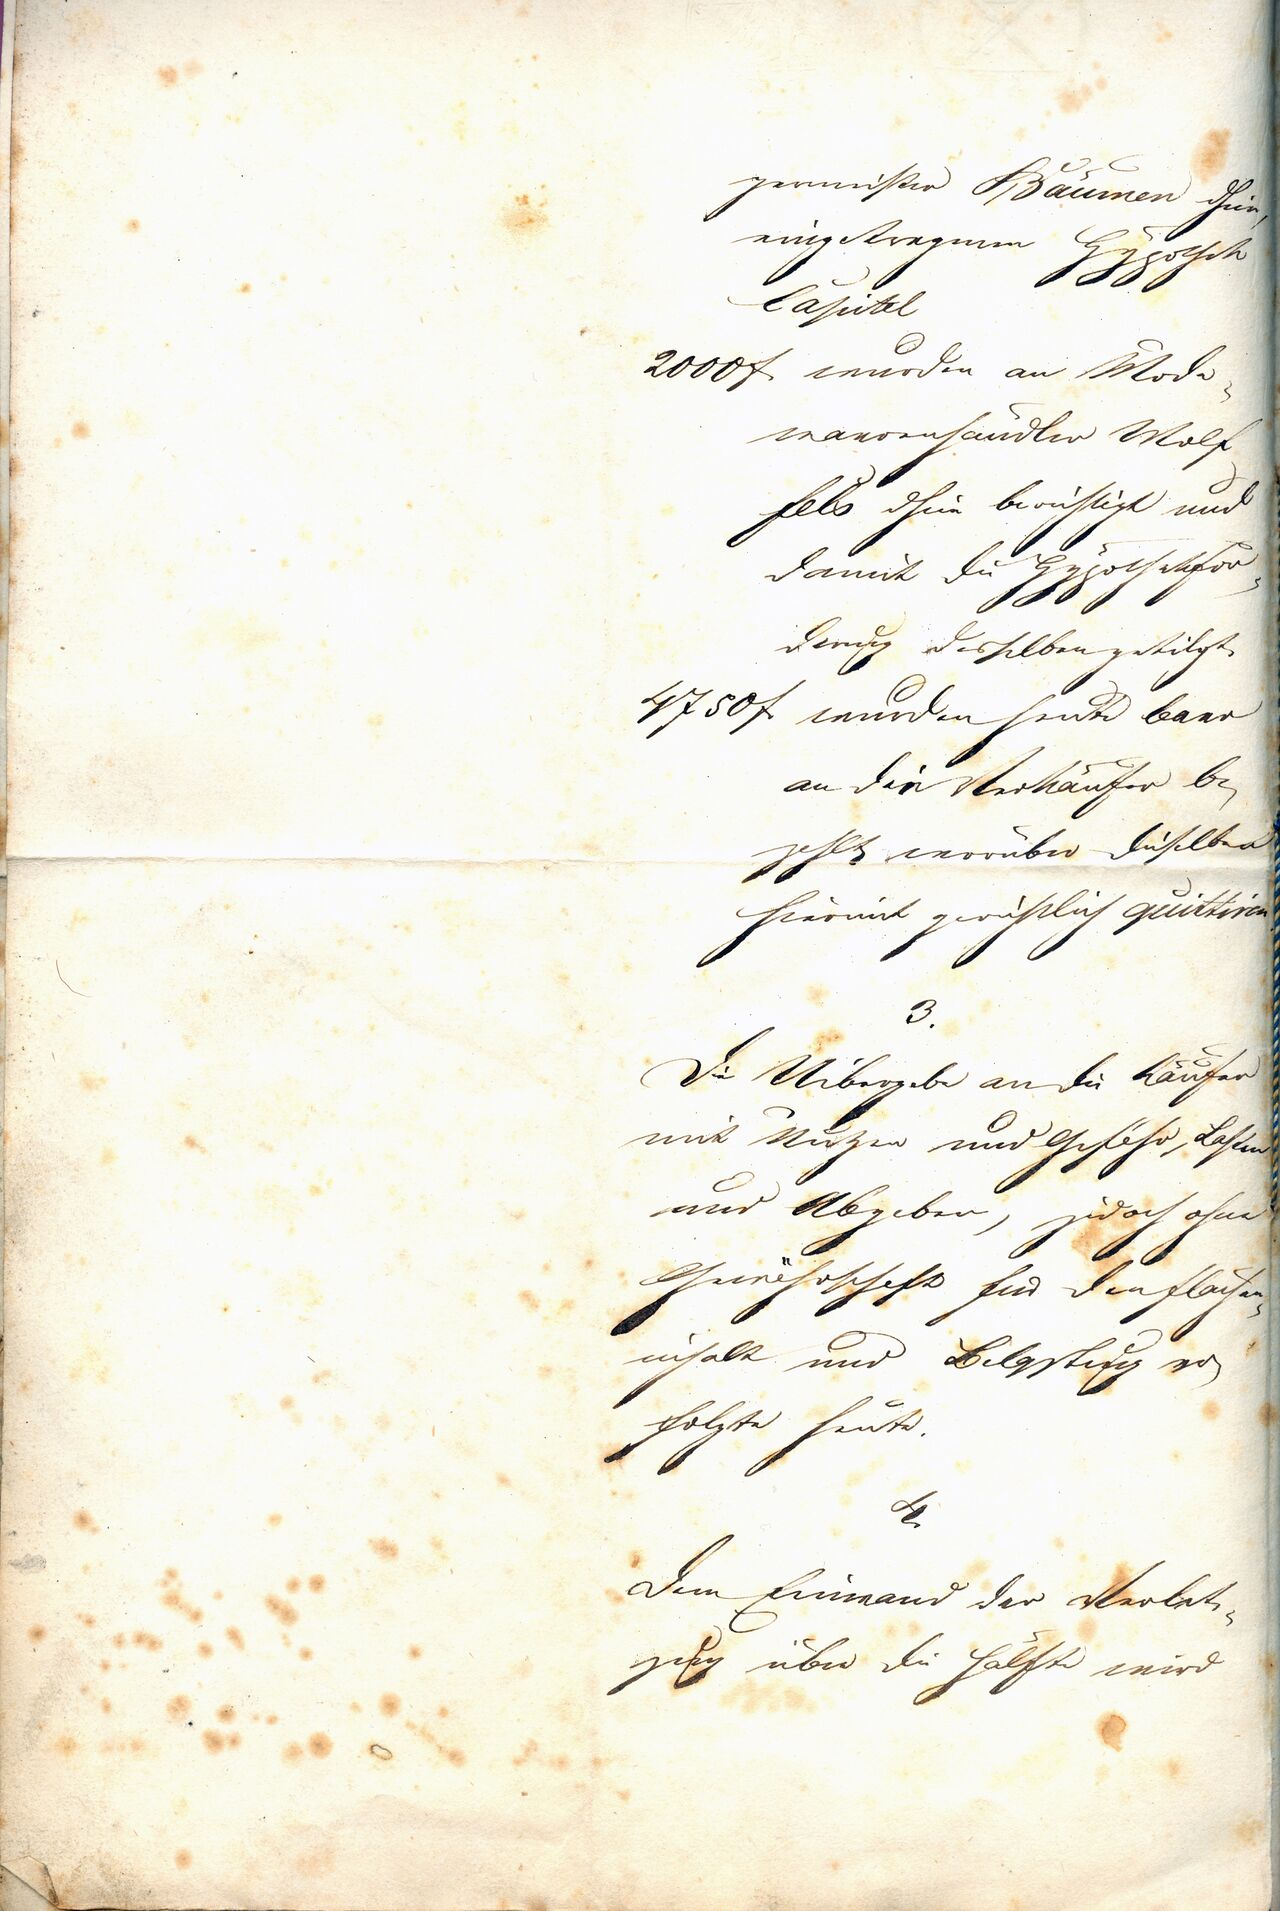 germeister Bäumen dhier
eingetragenen Hypothek
Capital
2000f. wurden an Mode-
waarenhändler Wolf
Fels dhier berichtigt und
damit die Hypothekfor-
derung desselben getilgt.
4750f. wurden heute baar
an die Verkäufer be-
zahlt worüber dieselben
hiermit gerichtlich quittiren
3.
Die Uibergabe an die Käufer
mit Nutzen und Gefahr, Lasten
und Abgaben, jedoch ohne
Gewährschaft für den Flächen-
inhalt und Belastung er-
folgte heute.
4.
Dem Einwand der Verlet-
zung über die Hälfte wird